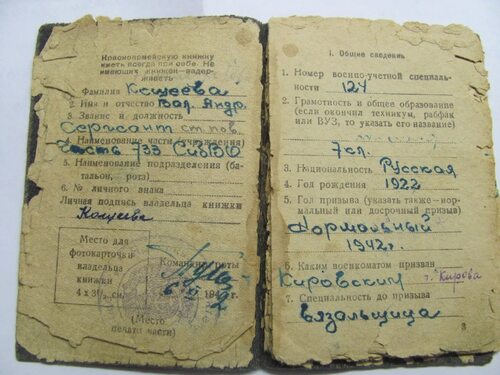 Красноармейскую книжку
иметь всегда при себе. Не
имеющих книжек — задер-
живать
1. Фамилия Кощеева
2. Имя и отчество Вал. Андр.
3. Звание и должность
Сержант ст. пов.
4. Наименование части (учреждения)
Часть 733 СибВО
5. Наименование подразделения (ба-
тальон, рота)
6. № личного знака
Личная подпись владельца книжки
Кощеева
Место для
фотокарточки
владельца
книжки
4 х 3½ см.
Командир роты
194 г.
(Место
печати части)
I. Общие сведения
1. Номер военно-учетной специаль-
ности 124
2. Грамотность и общее образование
(если окончил техникум, рабфак
или ВУЗ, то указать его название)
7 кл.
3. Национальность Русская
4. Год рождения 1922
5. Год призыва (указать также — нор-
мальный или досрочный призыв)
Нормальный
1942 г.
6. Каким военкоматом призван
Кировским г. Кирова
7. Специальность до призыва
вязальщица
3